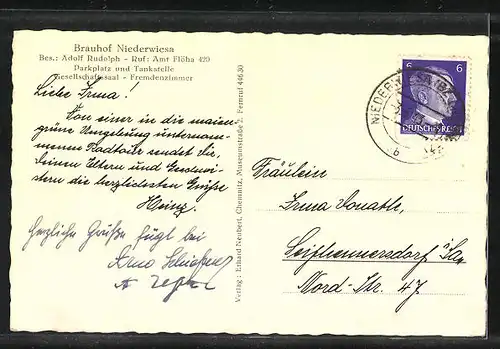 Brauhof Niederwiesa
Bes.: Adolf Rudolph - Ruf: Amt Flöha 429
Parkplatz und Tankstelle
Gesellschaftssaal - Fremdenzimmer
Liebe Irma!
Von einer in die maien-
grüne Umgebung unternom-
menen Radtour sendet Dir,
Deinen Eltern und Geschwi-
stern die herzlichsten Grüße
Heinz.
Herzliche Grüße fügt bei
Arno
Verlag: Erhard Neubert, Chemnitz, Museumstraße 2. Fernruf 44630
6 6
DEUTSCHES REICH
NIEDERWIESA
b
Fräulein
Irma Donath,
Seifhennersdorf i/Sa.
Nord-Str. 47